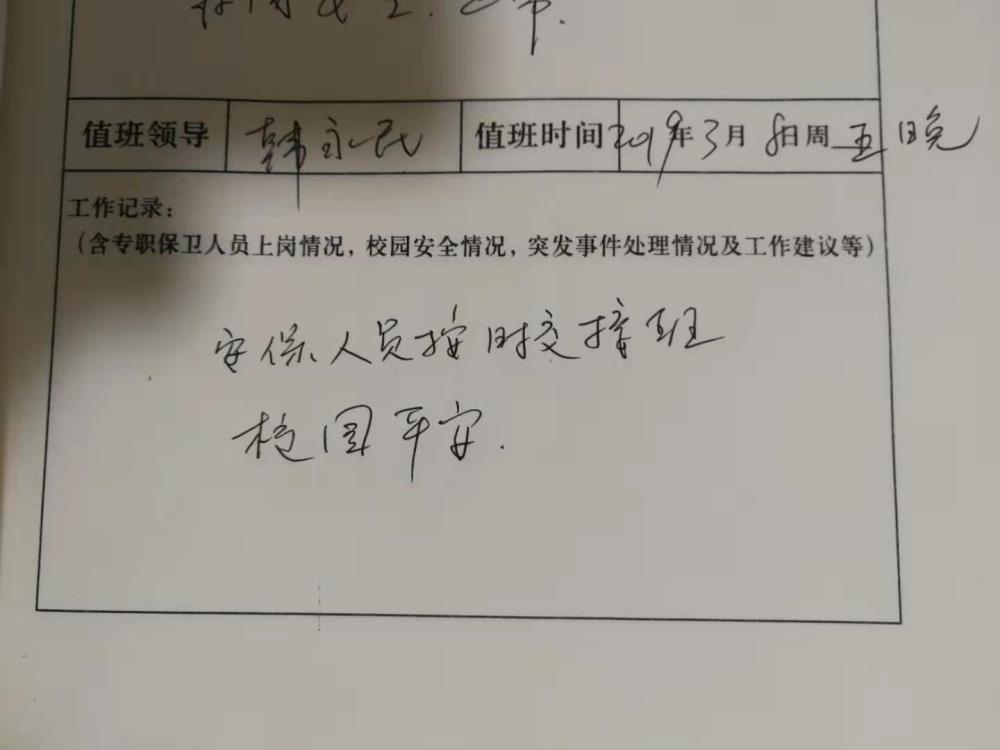 值班领导 韩永民 值班时间 2019年3月8日周五晚
工作记录：
（含专职保卫人员上岗情况，校园安全情况，突发事件处理情况及工作建议等）
安保人员按时交接班
校园平安.